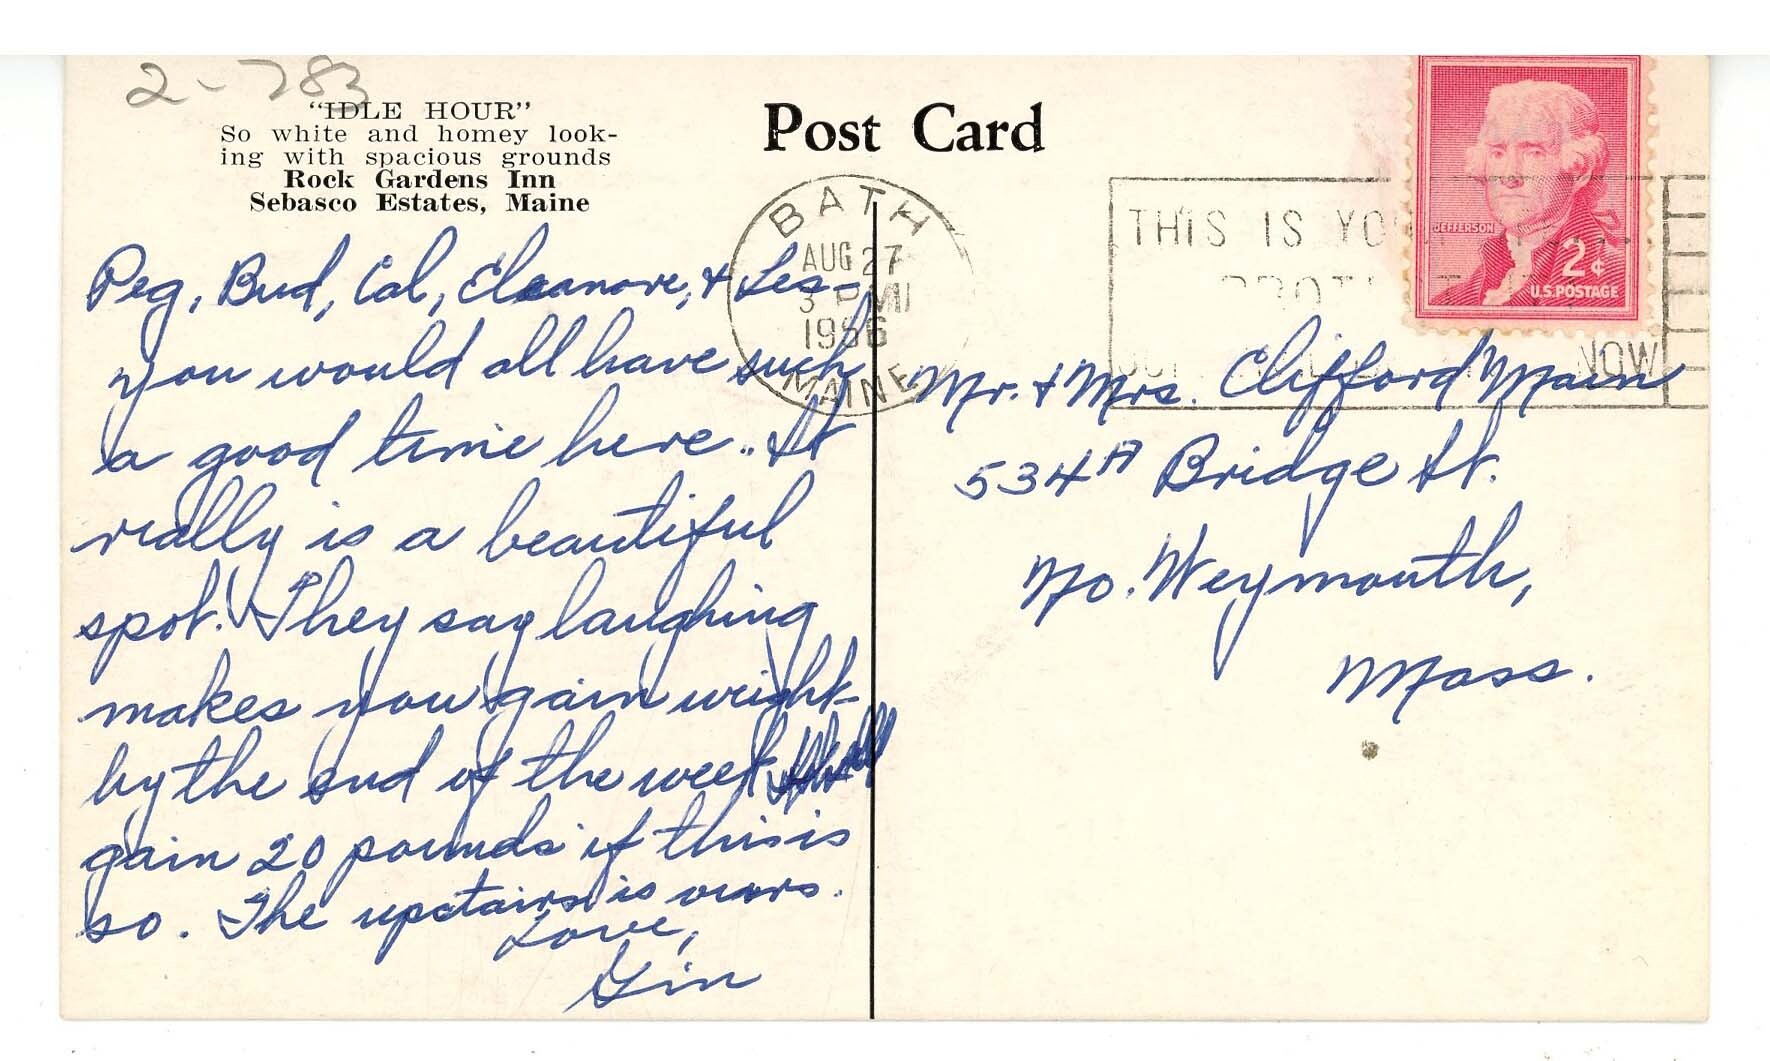 2-783
"IDLE HOUR"
So white and homey look-
ing with spacious grounds
Rock Gardens Inn
Sebasco Estates, Maine
Post Card
BATH
AUG 27
3 PM
1956
MAINE
THIS IS YO
NOW
JEFFERSON
2¢
U.S. POSTAGE
Peg, Bud, Cal, Eleanore, & Les-
you would all have such
a good time here. It
really is a beautiful
spot. They say laughing
makes you gain weight-
by the end of the week I shall
gain 20 pounds if this is
so. The upstairs is ours.
Love,
Gin
Mr. & Mrs. Clifford Main
534A Bridge St.
No. Weymouth,
Mass.